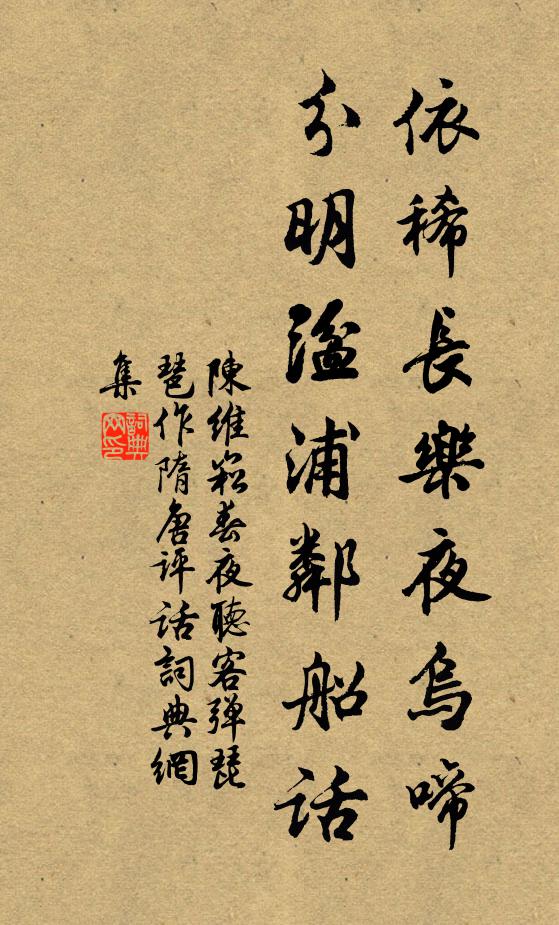 依稀長樂夜烏啼
分明湓浦鄰船話
陳維崧春夜聽客彈琵
琶作隋唐評話詞典網
集
詞典
网印